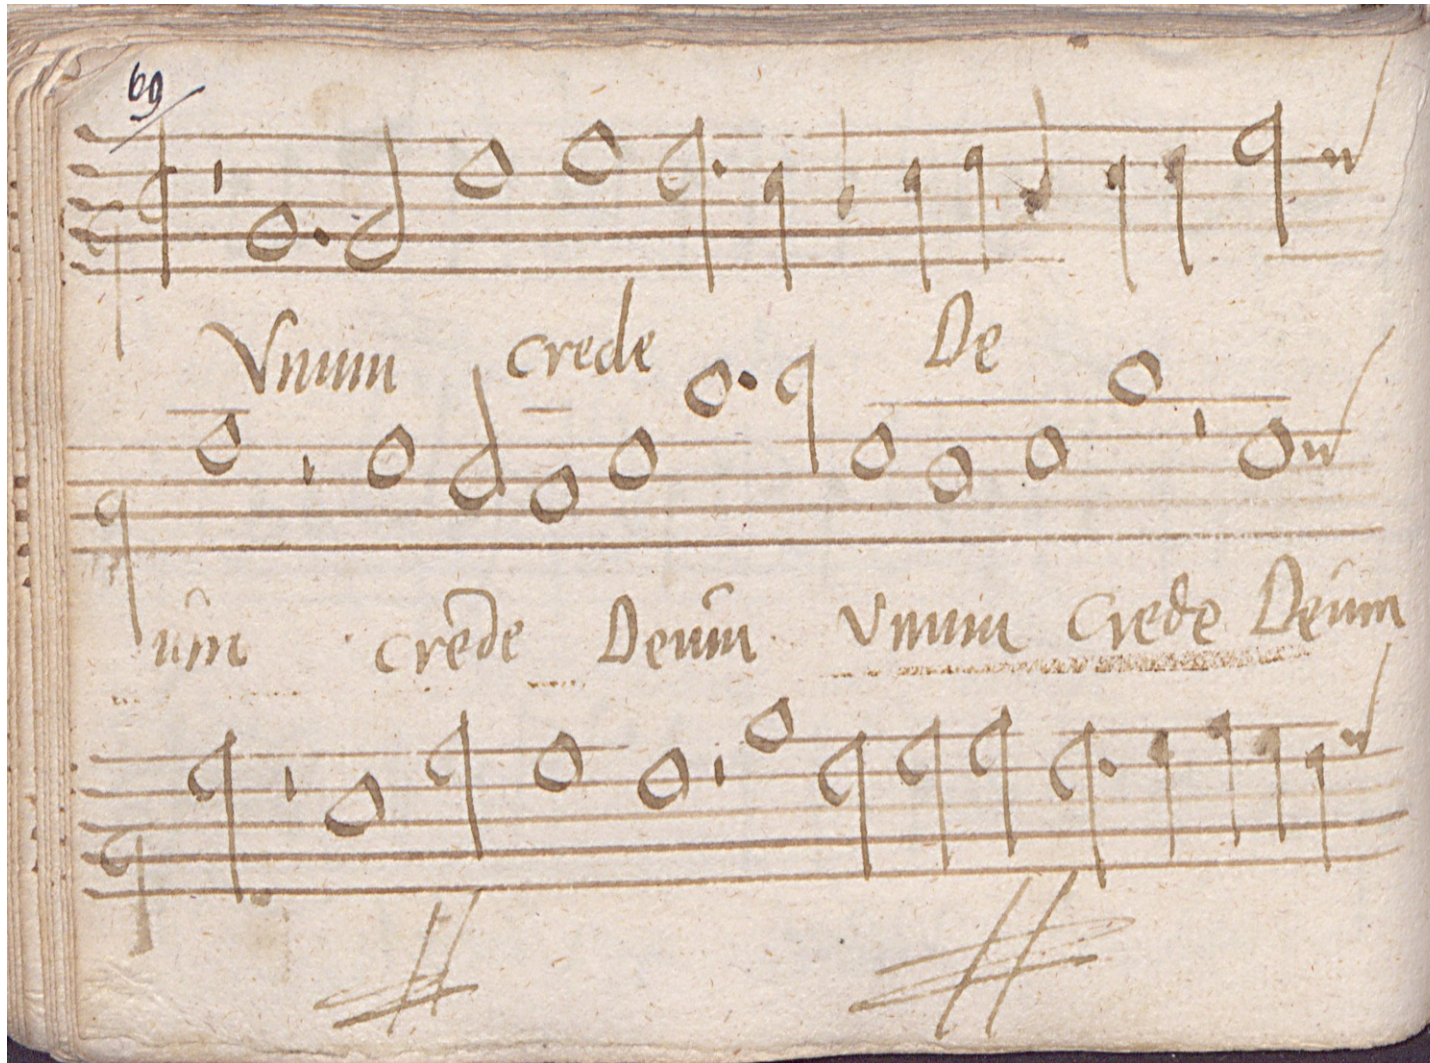 69
Vnum crede De
um crede Deum Vnum Crede Deum